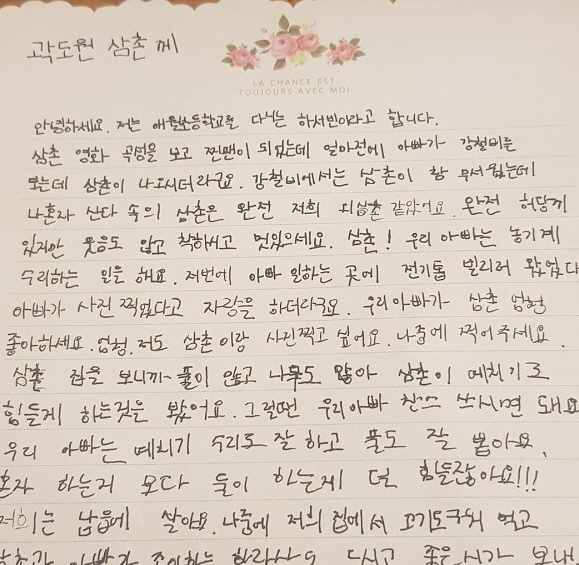 곽도원 삼촌께
LA CHANCE EST
TOUJOURS AVEC MOI
안녕하세요. 저는 애월초등학교를 다니는 하서빈이라고 합니다.
삼촌 영화 곡성을 보고 찐팬이 되었는데 얼마전에 아빠가 강철비를
보는데 삼촌이 나오시더라구요. 강철비에서는 삼촌이 참 무서웠는데
나혼자 산다 속의 삼촌은 완전 저희 외삼촌 같았어요. 완전 허당께
있지만 웃음도 많고 착하시고 멋있으세요. 삼촌! 우리 아빠는 농기계
수리하는 일을 해요. 저번에 아빠 일하는 곳에 전기톱 빌리러 왔었다
아빠가 사진 찍었다고 자랑을 하더라구요. 우리아빠가 삼촌 엄청
좋아하세요. 엄청. 저도 삼촌이랑 사진찍고 싶어요. 나중에 찍어주세요.
삼촌 집을 보니까 풀이 많고 나무도 많아 삼촌이 예치기로
힘들게 하는것을 봤어요. 그럴땐 우리아빠 찬스 쓰시면 돼요
우리 아빠는 예치기 수리도 잘 하고 풀도 잘 뽑아요.
혼자 하는거 보다 둘이 하는게 덜 힘들잖아요!!!
저희는 납읍에 살아요. 나중에 저희 집에서 고기도구워 먹고
삼촌과 아빠가 좋아하는 한라산도 다시고 좋은시간 보내